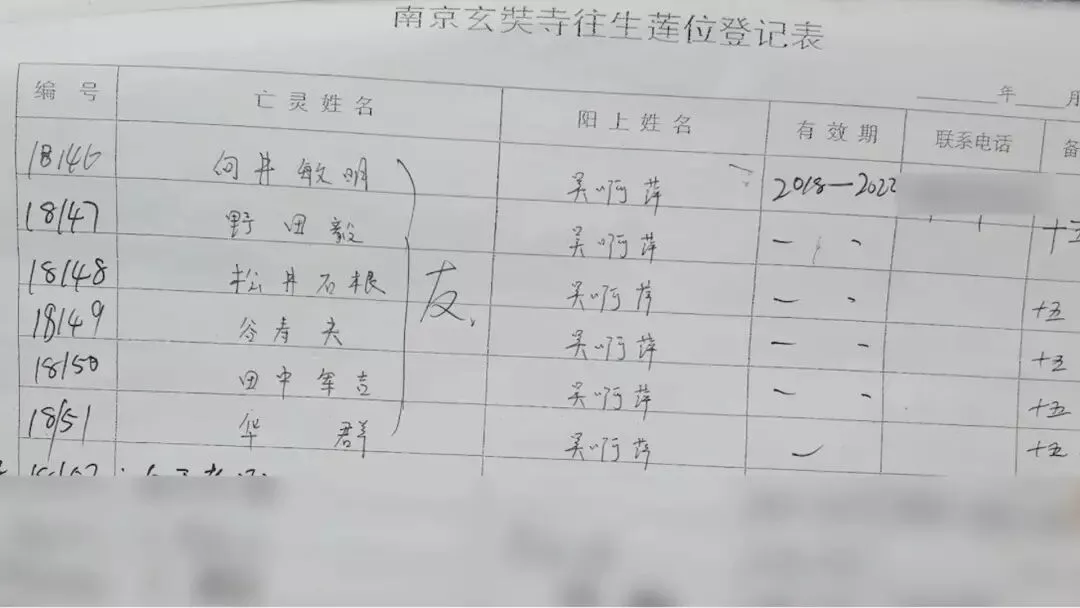 南京玄奘寺往生莲位登记表
年 月
编号 亡灵姓名 阳上姓名 有效期 联系电话 备
18146 向井敏明 吴啊萍 2018-2022
18147 野田毅 吴啊萍 十五
18148 松井石根 吴啊萍 十五
友
18149 谷寿夫 吴啊萍 十五
18150 田中军吉 吴啊萍 十五
18151 华群 吴啊萍 十五